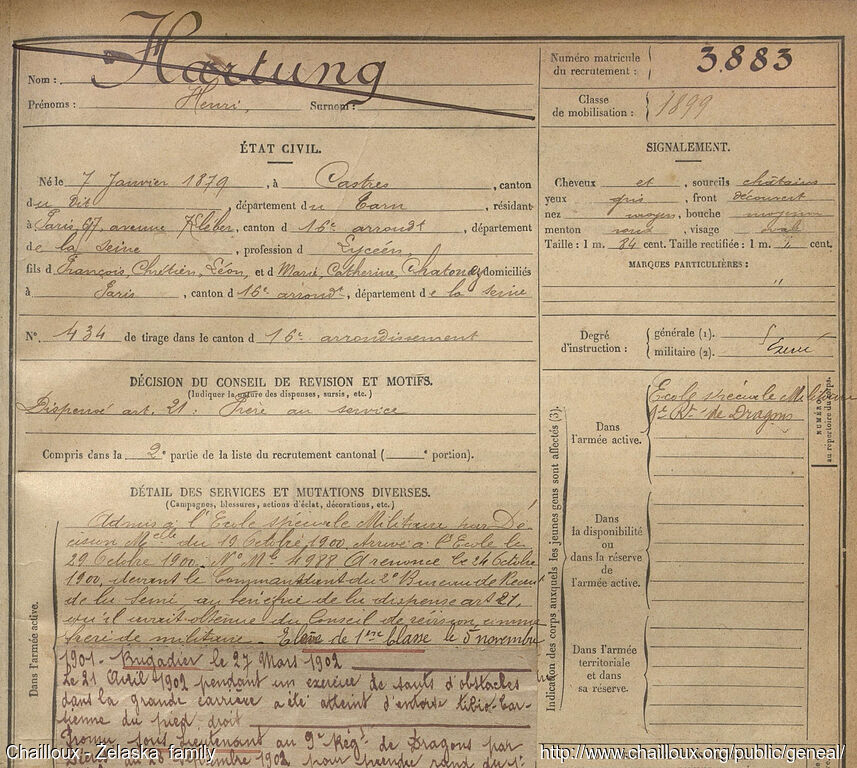 Nom : Hartung
Prénoms : Henri, Surnom :
ÉTAT CIVIL.
Né le 7 Janvier 1879, à Castres, canton
du Dit, département du Tarn, résidant
à Paris 67, avenue Kléber, canton d 16e arrondt, département
de la Seine, profession d Lycéen
fils d François, Chrétien, Léon, et d Marie, Catherine, Chatong, domiciliés
à Paris, canton d 16e arrondt, département de la Seine
N°. 434 de tirage dans le canton d 16e arrondissement
DÉCISION DU CONSEIL DE REVISION ET MOTIFS.
(Indiquer la nature des dispenses, sursis, etc.)
Dispensé art. 21 : Frère au service
Compris dans la 2e partie de la liste du recrutement cantonal ( e portion).
DÉTAIL DES SERVICES ET MUTATIONS DIVERSES.
(Campagnes, blessures, actions d'éclat, décorations, etc.)
Dans l'armée active.
Admis à l'Ecole spéciale Militaire par Dé-
cision Melle du 19 Octobre 1900. Arrivé à l'Ecole le
29 Octobre 1900. N° Mle 4988 A renoncé le 24 Octobre
1900, devant le Commandant du 2e Bureau de Recrut
de la Seine au bénéfice de la dispense art 21,
qu'il avait obtenue du Conseil de révision, comme
frère de militaire. Elève de 1ère Classe le 5 novembre
1901 - Brigadier le 27 Mars 1902
Le 21 Avril 1902 pendant un exercice de sauts d'obstacles
dans la grande carrière a été atteint d'entorse tibio-tar-
sienne du pied droit
Promu sous Lieutenant au 9e Régt de Dragons par
1902 pour prendre rang du 1er
Numéro matricule
du recrutement : 3.883
Classe
de mobilisation : 1899
SIGNALEMENT.
Cheveux et, sourcils châtains
yeux gris, front découvert
nez moyen, bouche moyenne
menton rond, visage ovale
Taille : 1 m. 84 cent. Taille rectifiée : 1 m. " cent.
MARQUES PARTICULIÈRES :
"
Degré
d'instruction :
générale (1).
militaire (2). Exercé
Indication des corps auxquels les jeunes gens sont affectés (3).
Dans
l'armée active.
Ecole spéciale Militaire
Rt de Dragons
NUMÉRO
au répertoire du corps.
Dans
la disponibilité
ou
dans la réserve
de
l'armée active.
Dans l'armée
territoriale
et dans
sa réserve.
Chailloux - Żelaska family
http://www.chailloux.org/public/geneal/